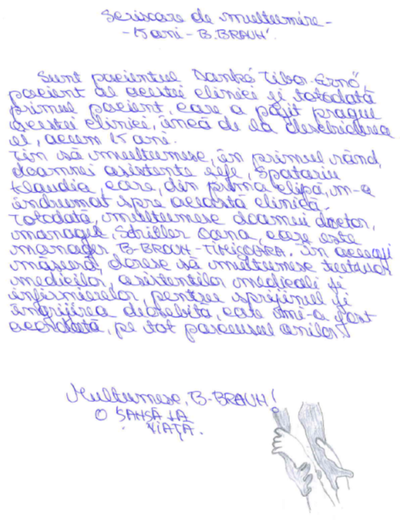 Scrisoare de mulțumire -
- 15 ani - B. BRAUN.
Sunt pacientul Sankó Tibor-Ernő,
pacient al acestei clinici și totodată
primul pacient, care a pășit pragul
acestei clinici, încă de la deschiderea
ei, acum 15 ani.
Țin să mulțumesc, în primul rând,
doamnei asistente șefe, Spătariu
Klaudia, care, din prima clipă, m-a
îndrumat spre această clinică.
Totodată, mulțumesc doamnei doctor,
manager, Schiller Oana, care este
manager B-BRAUN-TIMIȘOARA. În aceeași
măsură, doresc să mulțumesc tuturor
medicilor, asistenților medicali și
infirmierelor, pentru sprijinul și
îngrijirea deosebită, care mi-a fost
acordată, pe tot parcursul anilor!
Mulțumesc, B-BRAUN!
O ȘANSĂ LA
VIAȚĂ.